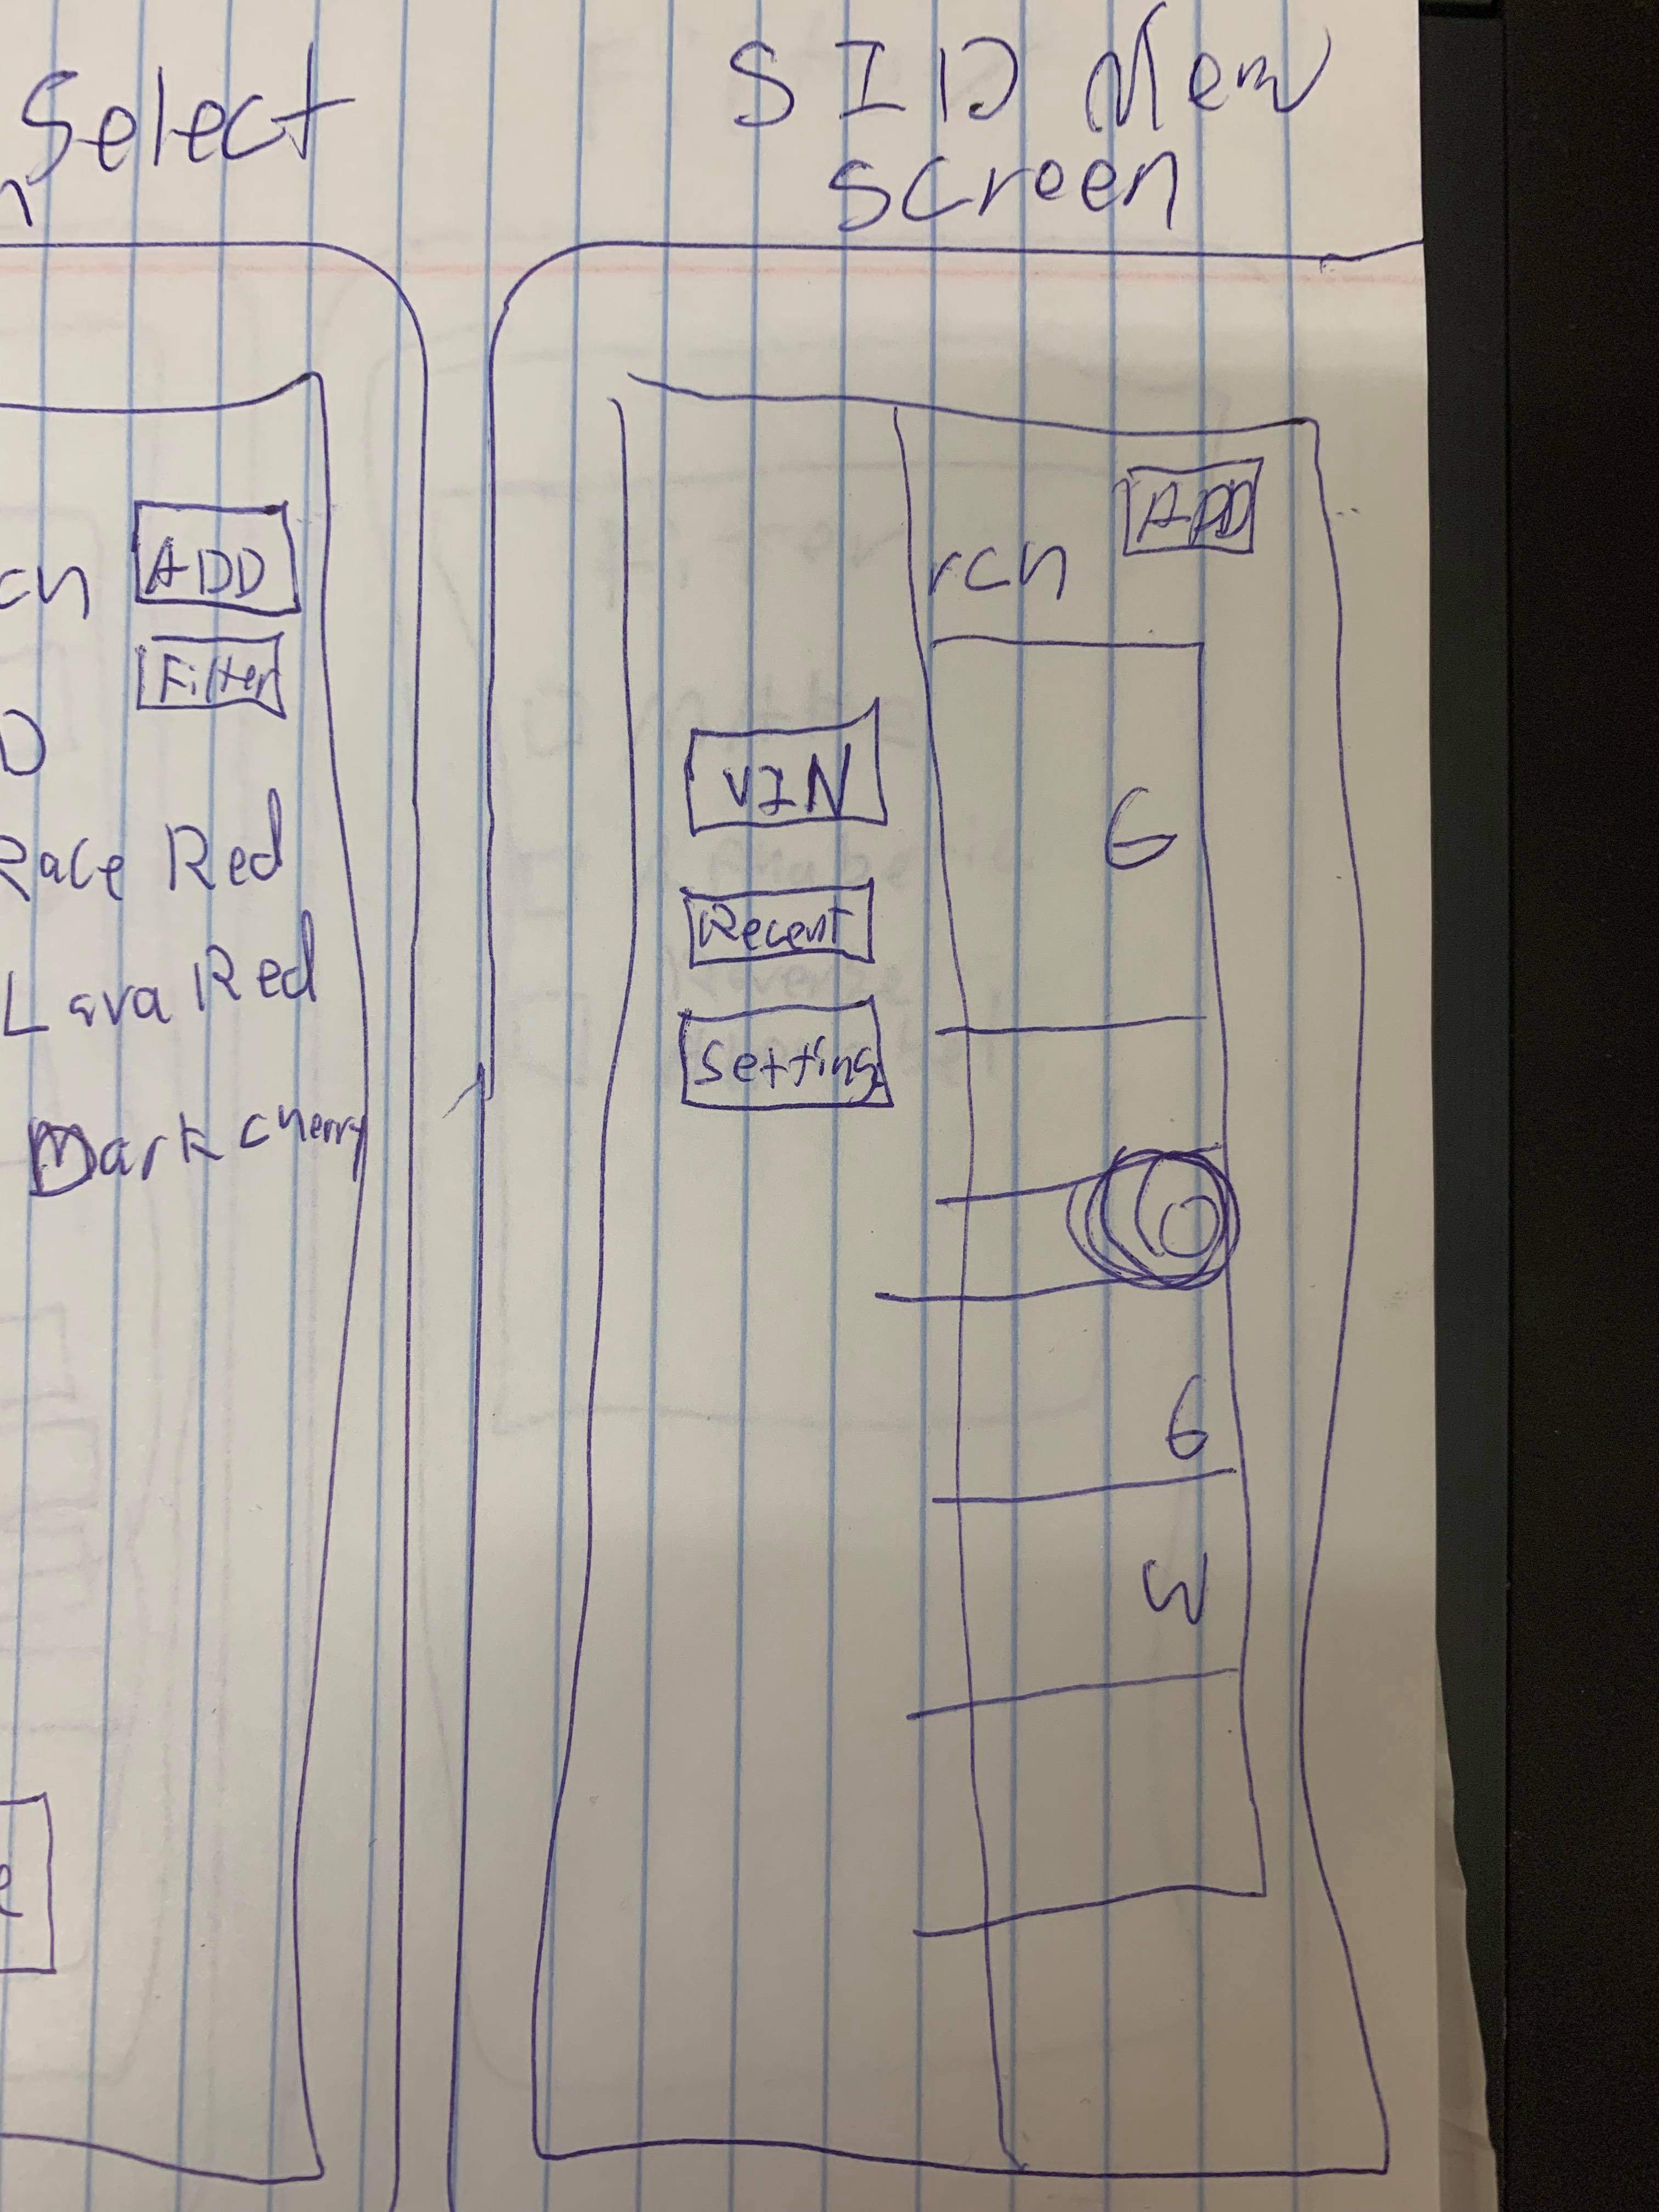 Select
n
cn
ADD
Filter
D
Race Red
Lava Red
Dark cherry
e
SID Menu
screen
ADD
rch
VIN
Recent
Setting
G
G
W